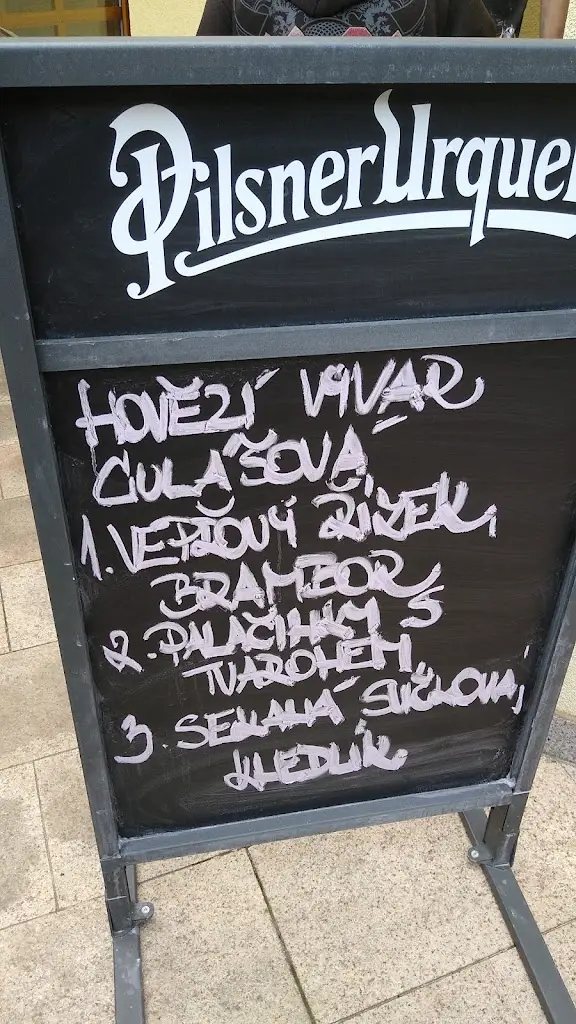 Pilsner Urquel
HOVĚZÍ VÝVAR
GULÁŠOVÁ
1. VEPŘOVÝ ŘÍZEK,
BRAMBOR
2. PALAČINKY S
TVAROHEM
3. SEKANÁ SVÍČKOVÁ,
KNEDLÍK